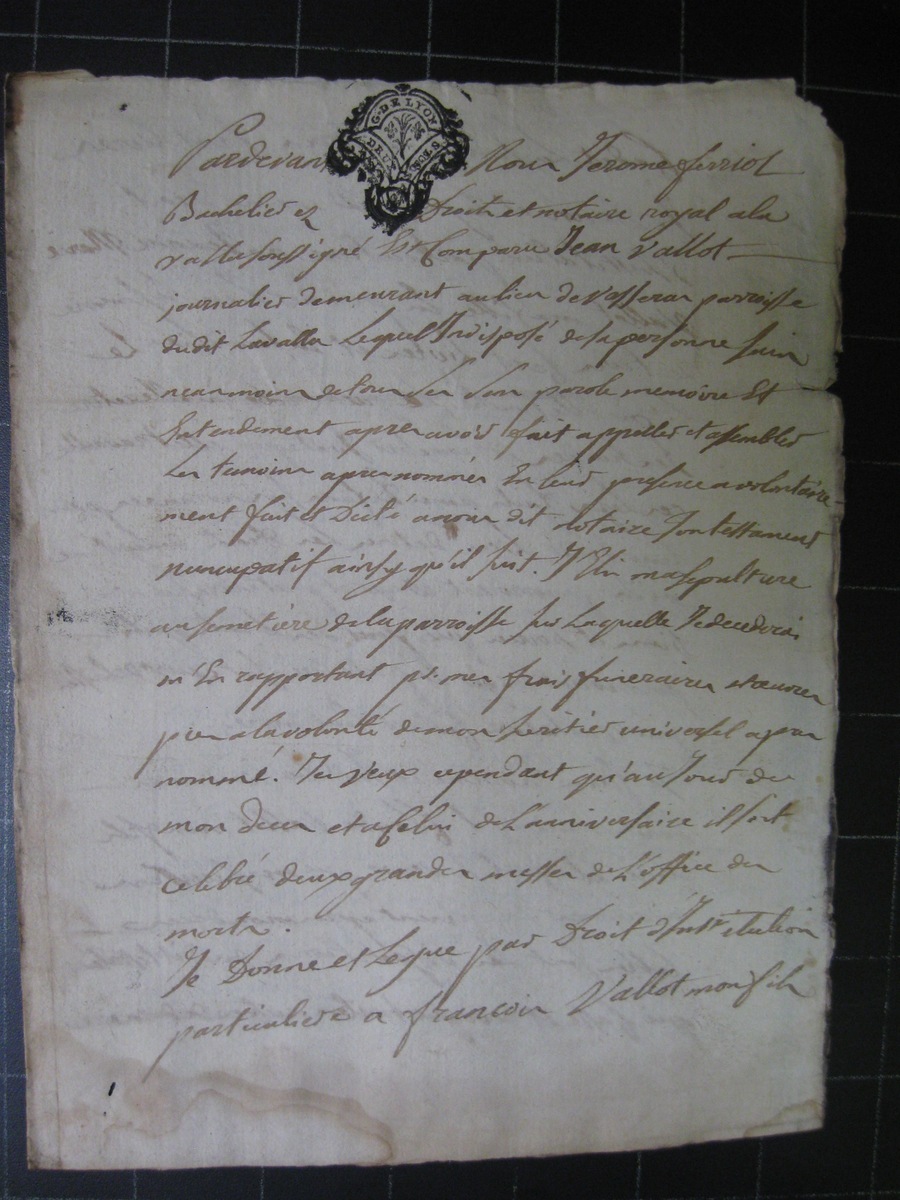 G. DE LYON
DEUX SOLS
Pardevant Nous Jerome ferriol
Bachelier ez Droits et notaire royal a la
valla soussigné Est Comparu Jean Vallot
journalier demeurant au lieu de parroisse
dudit Lavalla Lequel Indisposé de sa personne sain
neanmoins de tous ses sens parole memoire Et
Entendement apres avoir fait appeller et assembler
Les temoins apres nommés En leur presence a volontaire-
ment fait et Dicté a nous dit notaire son testament
nuncupatif ainsy qu'il suit. J'Elis ma sepulture
au semetiere de la parroisse sur Laquelle Je decederai
m'En rapportant pr. mes frais funeraires et œuvres
pies a la volonté de mon heritier universel apres
nommé. Je veux cependant qu'au Jour de
mon deces et a celui de L'anniversaire il soit
celebré deux grandes messes de L'office des
morts.
Je Donne et Legue par Droit d'Institution
particuliere a francois Vallot mon fils